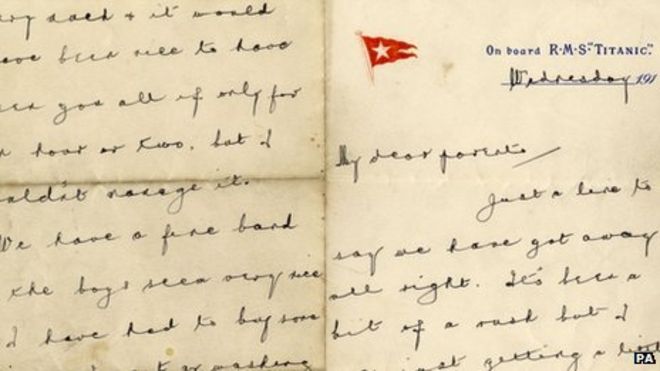 very and & it would
have been nice to have
seen you all if only for
an hour or two. but I
couldn't manage it.
We have a fine band
& the boys seem very nice
I have had to buy some
or washing
On board R·M·S "TITANIC".
Wednesday 191
My dear parents
Just a line to
say we have got away
all right. It's been a
bit of a rush but I
just getting a
PA